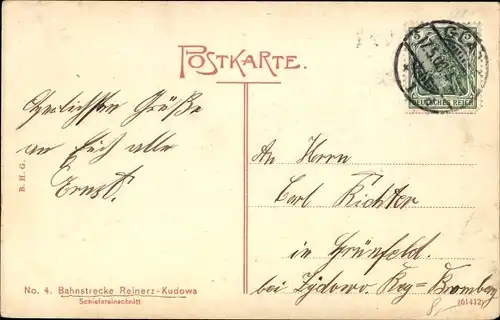 POSTKARTE.
GLATZ
DEUTSCHES REICH
Herzlichsten Grüße
an Euch alle
Ernst.
An Herrn
Carl Richter
in Grünfeld.
bei Zydowo. Reg= Bromberg
B. H. G.
No. 4. Bahnstrecke Reinerz-Kudowa
Schiefereinschnitt
(61412)
8,-